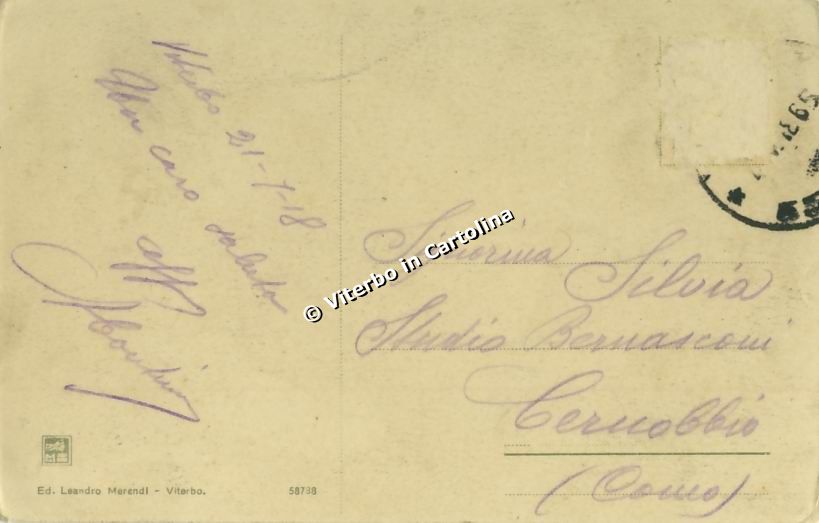 Viterbo 21-7-18
Un caro saluto
aff
© Viterbo in Cartolina
Signorina
Silvia
Studio Bernasconi
Cernobbio
(Como)
Ed. Leandro Merendi - Viterbo.
58738